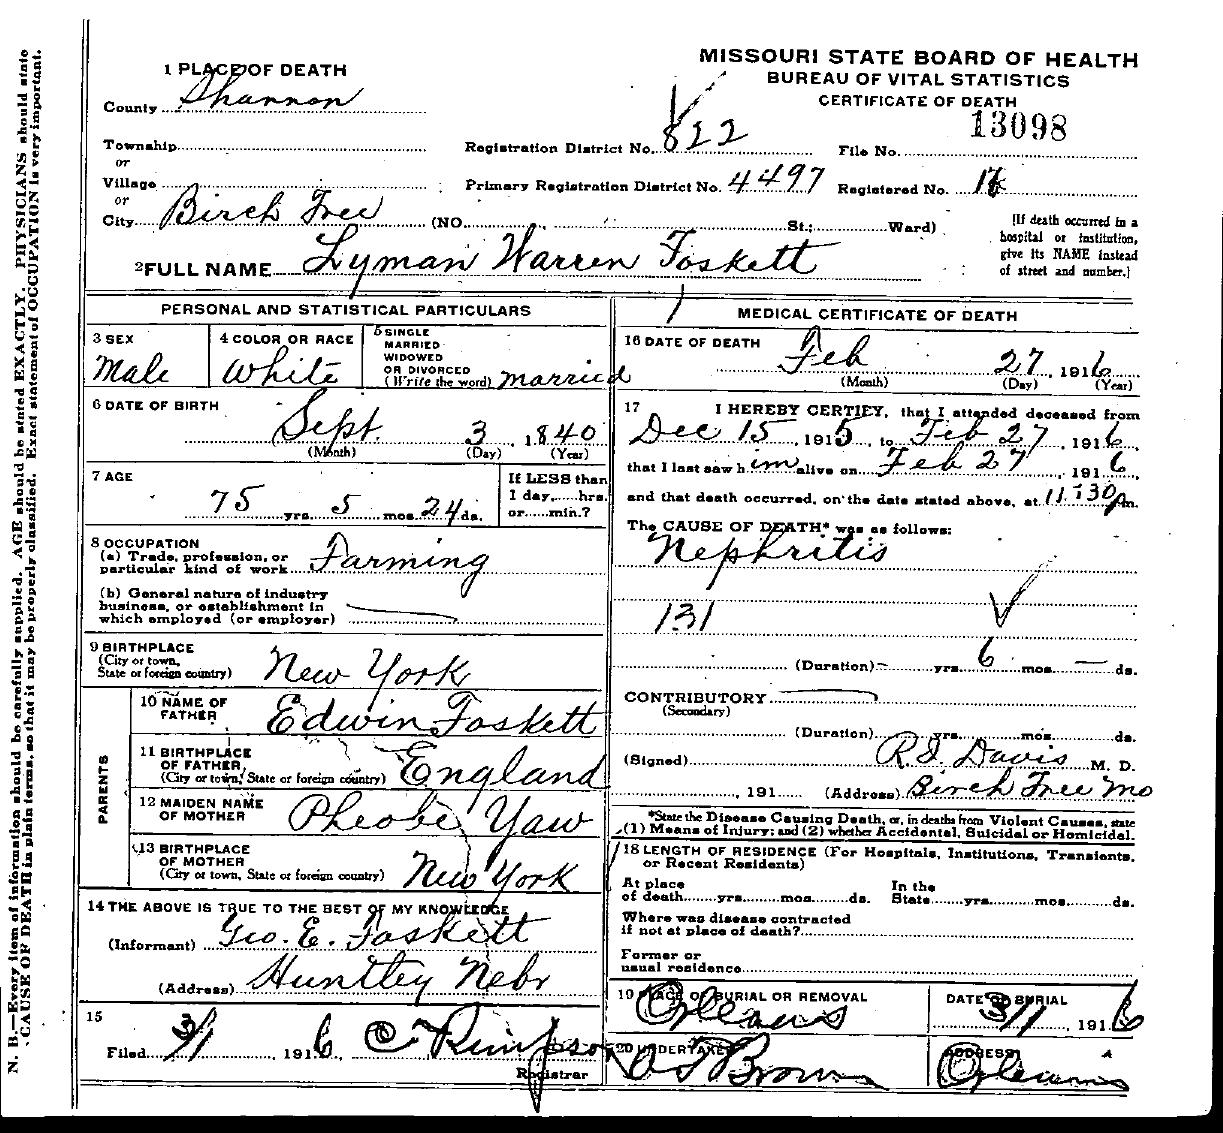 MISSOURI STATE BOARD OF HEALTH
BUREAU OF VITAL STATISTICS
CERTIFICATE OF DEATH
13098
1 PLACE OF DEATH
County Shannon
Township
or
Village
or
City Birch Tree (NO. St.; Ward)
Registration District No. 822 File No.
Primary Registration District No. 4497 Registered No.
[If death occurred in a
hospital or institution,
give its NAME instead
of street and number.]
2 FULL NAME Lyman Warren Foskett
PERSONAL AND STATISTICAL PARTICULARS
3 SEX
Male
4 COLOR OR RACE
White
5 SINGLE
MARRIED
WIDOWED
OR DIVORCED
(Write the word) married
6 DATE OF BIRTH
Sept. 3, 1840
(Month) (Day) (Year)
7 AGE
75 yrs. 5 mos. 24 ds.
If LESS than
1 day,......hrs.
or......min.?
8 OCCUPATION
(a) Trade, profession, or
particular kind of work Farming
(b) General nature of industry
business, or establishment in
which employed (or employer)
9 BIRTHPLACE
(City or town,
State or foreign country) New York
PARENTS
10 NAME OF
FATHER Edwin Foskett
11 BIRTHPLACE
OF FATHER
(City or town, State or foreign country) England
12 MAIDEN NAME
OF MOTHER Pheobe Yaw
13 BIRTHPLACE
OF MOTHER
(City or town, State or foreign country) New York
14 THE ABOVE IS TRUE TO THE BEST OF MY KNOWLEDGE
(Informant) Geo. E. Foskett
(Address) Huntley Nebr
15
Filed 3/1, 1916, C
Registrar
MEDICAL CERTIFICATE OF DEATH
16 DATE OF DEATH Feb 27, 1916
(Month) (Day) (Year)
17 I HEREBY CERTIFY, that I attended deceased from
Dec 15, 1915, to Feb 27, 1916,
that I last saw him alive on Feb 27, 1916,
and that death occurred, on the date stated above, at 11:30 pm.
The CAUSE OF DEATH* was as follows:
Nephritis
131
(Duration) – yrs. 6 mos. – ds.
CONTRIBUTORY
(Secondary)
(Duration) yrs. mos. ds.
(Signed) Davis M. D.
, 191 (Address) Birch Tree Mo
*State the Disease Causing Death, or, in deaths from Violent Causes, state
(1) Means of Injury; and (2) whether Accidental, Suicidal or Homicidal.
18 LENGTH OF RESIDENCE (For Hospitals, Institutions, Transients,
or Recent Residents)
At place
of death yrs. mos. ds.
In the
State yrs. mos. ds.
Where was disease contracted
if not at place of death?
Former or
usual residence
19 PLACE OF BURIAL OR REMOVAL
Orleans
DATE OF BURIAL
3/1, 1916
20 UNDERTAKER
Brown
ADDRESS
Orleans
N. B.—Every item of information should be carefully supplied. AGE should be stated EXACTLY. PHYSICIANS should state
CAUSE OF DEATH in plain terms, so that it may be properly classified. Exact statement of OCCUPATION is very important.